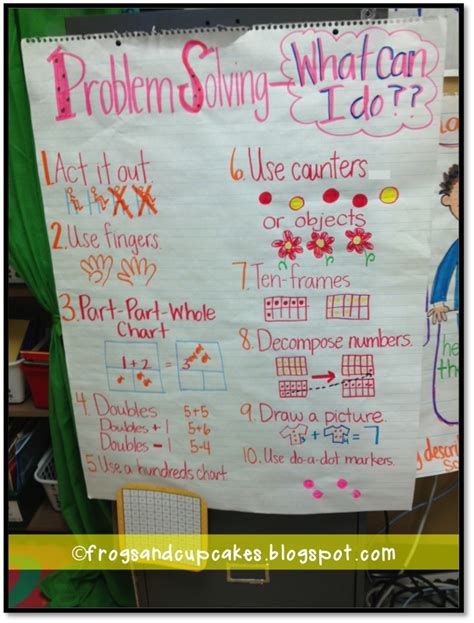 Problem Solving - What Can
I do??
1. Act it out.
2. Use fingers.
3. Part-Part-Whole
Chart
1+2 = 3
4. Doubles 5+5
Doubles + 1 5+6
Doubles - 1 5-4
5. Use a hundreds chart
6. Use counters
or objects
7. Ten-frames
8. Decompose numbers.
9. Draw a picture.
+ = 7
10. Use do-a-dot markers.
©frogsandcupcakes.blogspot.com